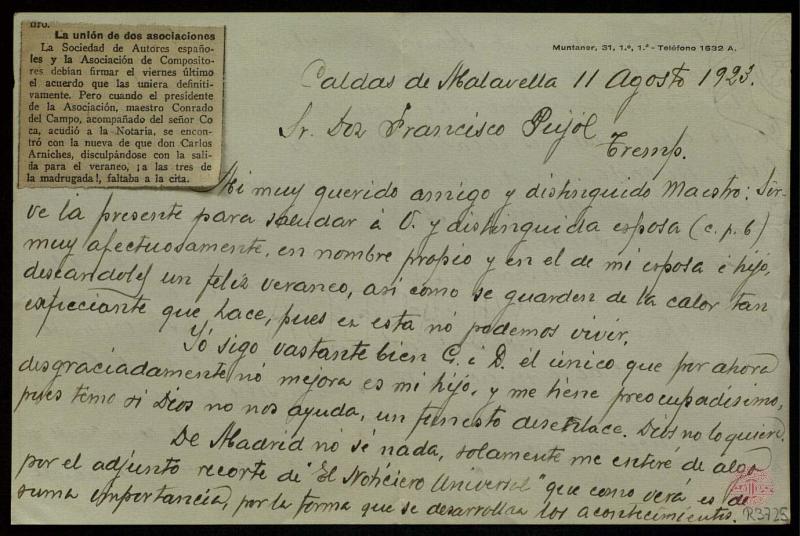 dro.
La unión de dos asociaciones
La Sociedad de Autores españo-
les y la Asociación de Composito-
res debían firmar el viernes último
el acuerdo que las uniera definiti-
vamente. Pero cuando el presidente
de la Asociación, maestro Conrado
del Campo, acompañado del señor Co
ca, acudió a la Notaría, se encon-
tró con la nueva de que don Carlos
Arniches, disculpándose con la sali-
da para el veraneo, ¡a las tres de
la madrugada!, faltaba a la cita.
Muntaner, 31, 1.º, 1.ª - Teléfono 1632 A.
Caldas de Malavella 11 Agosto 1923.
Sr. Don Francisco Pujól
Tremp.
Mi muy querido amigo y distinguido Maestro: Sir-
ve la presente para saludar á V. y distinguida esposa (c. p. b)
muy afectuosamente, en nombre propio y en el de mi esposa é hijo,
deseandoles un feliz veraneo, así como se guarden de la calor tan
que hace, pues en esta nó podemos vivir.
Yó sigo vastante bien G. á D. él único que por ahora
desgraciadamente nó mejora es mi hijo, y me tiene preocupadísimo,
pues temo si Dios no nos ayuda, un funesto desenlace. Dios no lo quiera.
De Madrid nó sé nada, solamente me enteré de algo
por el adjunto recorte de "El Notíciero Universal" que como verá es de
suma importáncia, por la forma que se desarrollan los acontecimientos.
R3725